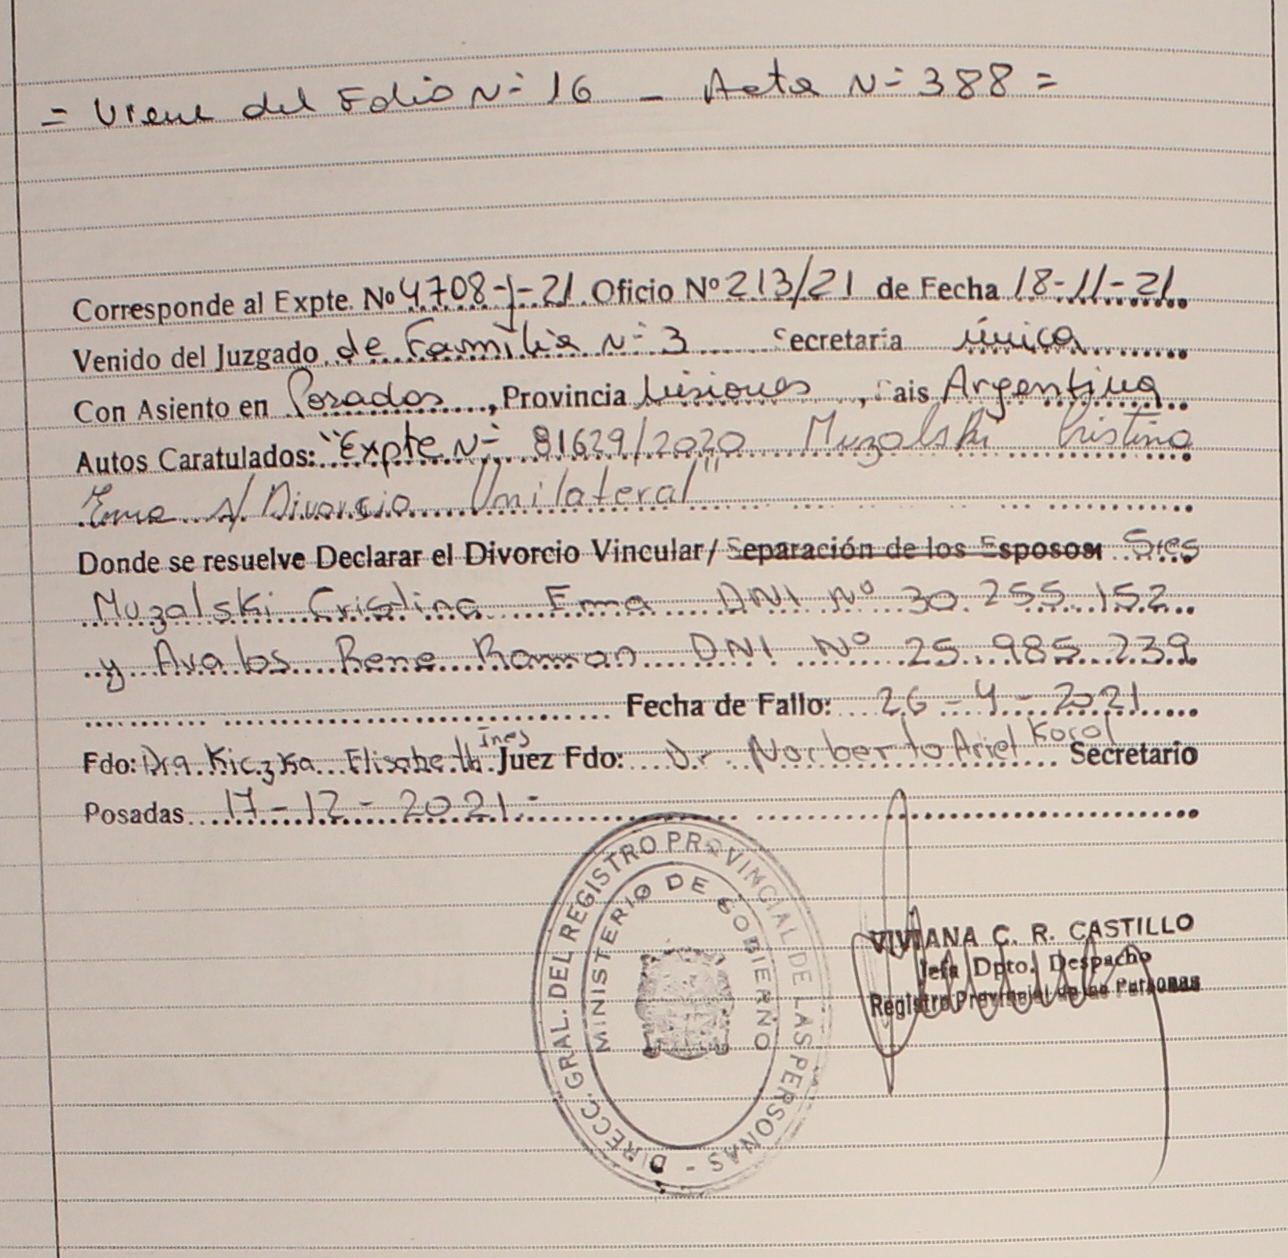 = Viene del Folio Nº 16 - Acta Nº 388 =
Corresponde al Expte. Nº 4708-J-21 Oficio Nº 213/21 de Fecha 18-11-21
Venido del Juzgado de Familia Nº 3 Secretaria única
Con Asiento en Posadas, Provincia Misiones, Pais Argentina
Autos Caratulados: "Expte Nº 81629/2020 Muzalski Cristina
Ema s/ Divorcio Unilateral"
Donde se resuelve Declarar el Divorcio Vincular/ Separación de los Esposos: Sres
Muzalski Cristina Ema DNI Nº 30.255.152
y Avalos Rene Raman DNI Nº 25.985.239
Fecha de Fallo: 26-4-2021
Fdo: Dra. Kiczka Elisabeth Ines Juez Fdo: Dr Norberto Ariel Korol Secretario
Posadas 17-12-2021-
DIRECC. GRAL. DEL REGISTRO PROVINCIAL DE LAS PERSONAS -
MINISTERIO DE GOBIERNO
VIVIANA C. R. CASTILLO
Jefa Dpto. Despacho
Registro Provincial de las Personas